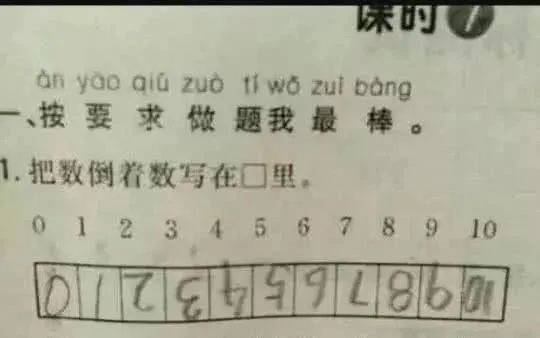 课时1
àn yāo qiú zuò tí wǒ zuì bàng
一、按要求做题我最棒。
1.把数倒着数写在□里。
0 1 2 3 4 5 6 7 8 9 10
0 1 2 3 4 5 6 7 8 9 10